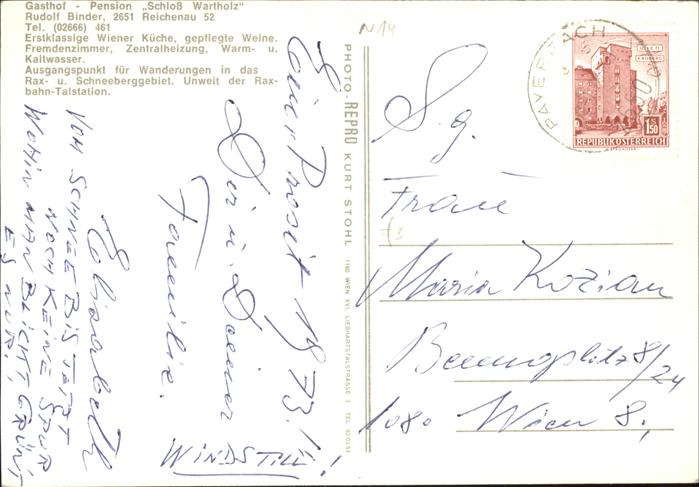 Gasthof - Pension „Schloß Wartholz"
Rudolf Binder, 2651 Reichenau 52
Tel. (02666) 461
Erstklassige Wiener Küche, gepflegte Weine.
Fremdenzimmer, Zentralheizung, Warm- u.
Kaltwasser.
Ausgangspunkt für Wanderungen in das
Rax- u. Schneeberggebiet. Unweit der Rax-
bahn-Talstation.
Prosit 1973!
Dir u. Deiner
Familie.
Elisabeth
VOM SCHNEE BIS JETZT
NOCH KEINE SPUR
WOHIN MAN BLICKT, GRÜNT
ES NUR!
WINDSTILL!
PHOTO-REPRO KURT STOHL
1160 WIEN XVI, LIEBHARTSTALSTRASSE 3 TEL. 920354
N14
PAYERBACH
1S50
REPUBLIK ÖSTERREICH
S.g.
Frau
Maria Kozian
8/24
1080 Wien 8.,